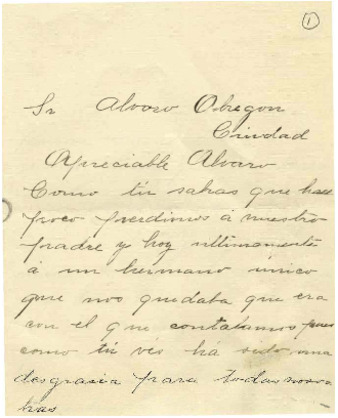 1
Sr Alvoro Obregon
Ciudad
Apreciable Alvaro
Como tú sabras que hace
poco perdimos á nuestro
padre y hoy ultimamente
á un hermano único
que nos quedaba que era
con el que contabamos pues
como tú vés há sido una
desgrasia para todas nosso
tras